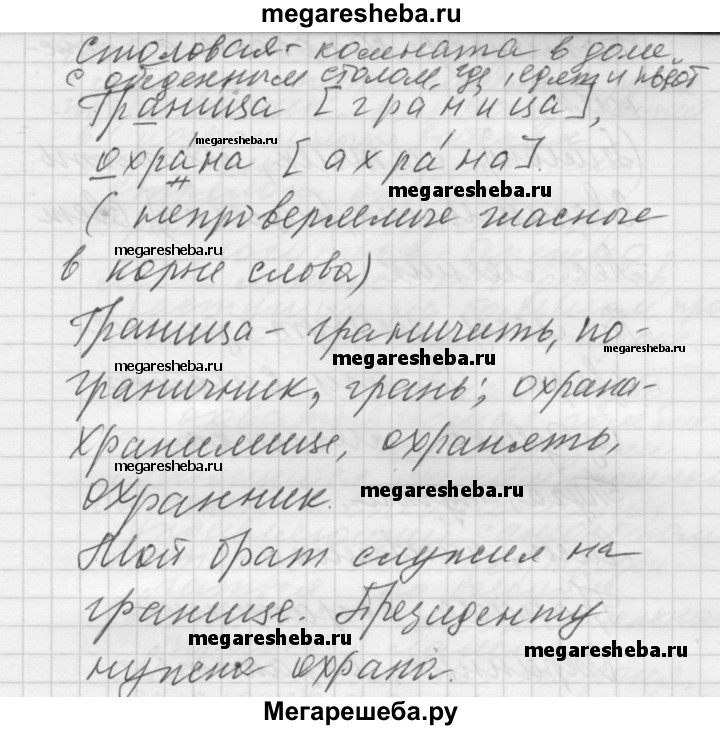 megaresheba.ru
столовая - комната в доме
с обеденным столом, где едят и пьют
Граница [граница],
megaresheba.ru
охрана [ахра́на].
megaresheba.ru
(непроверяемые гласные
megaresheba.ru
в корне слова)
Граница - граничить, по-
megaresheba.ru
megaresheba.ru
megaresheba.ru
граничник, грань; охрана-
хранилище, охранять,
megaresheba.ru
megaresheba.ru
охранник.
Мой брат служил на
границе. Президенту
megaresheba.ru
megaresheba.ru
нужна охрана.
Мегарешеба.ру